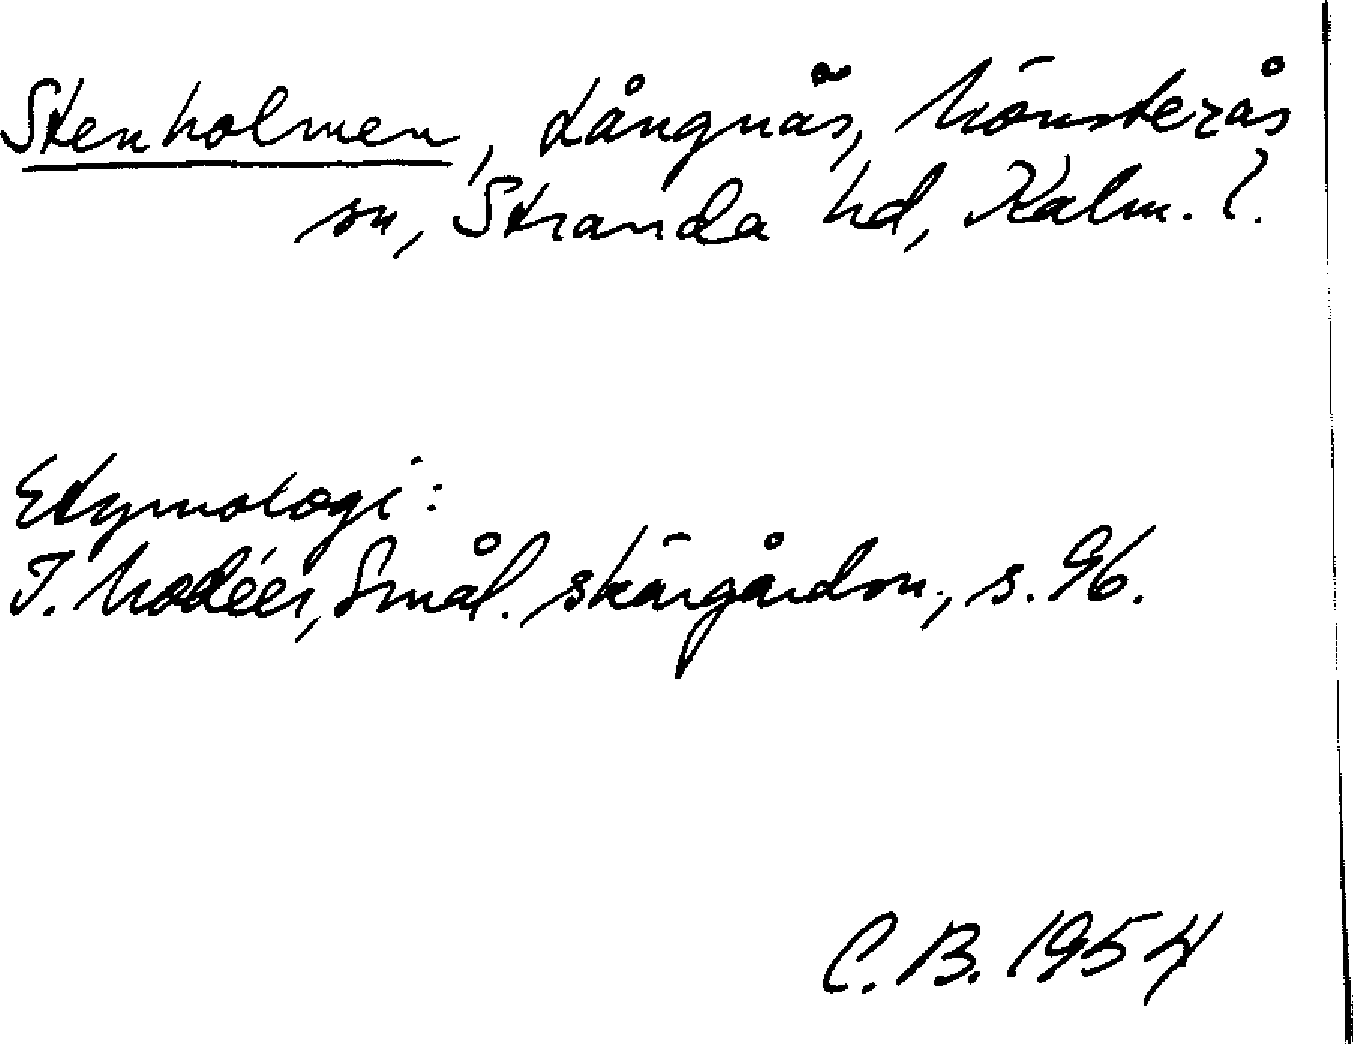 Stenholmen, Långnäs, Mönsterås
sn, Stranda hd, Kalm. l.
Etymologi:
I. Modéer, Smål. skärgårdsn., s. 96.
C. B. 1954